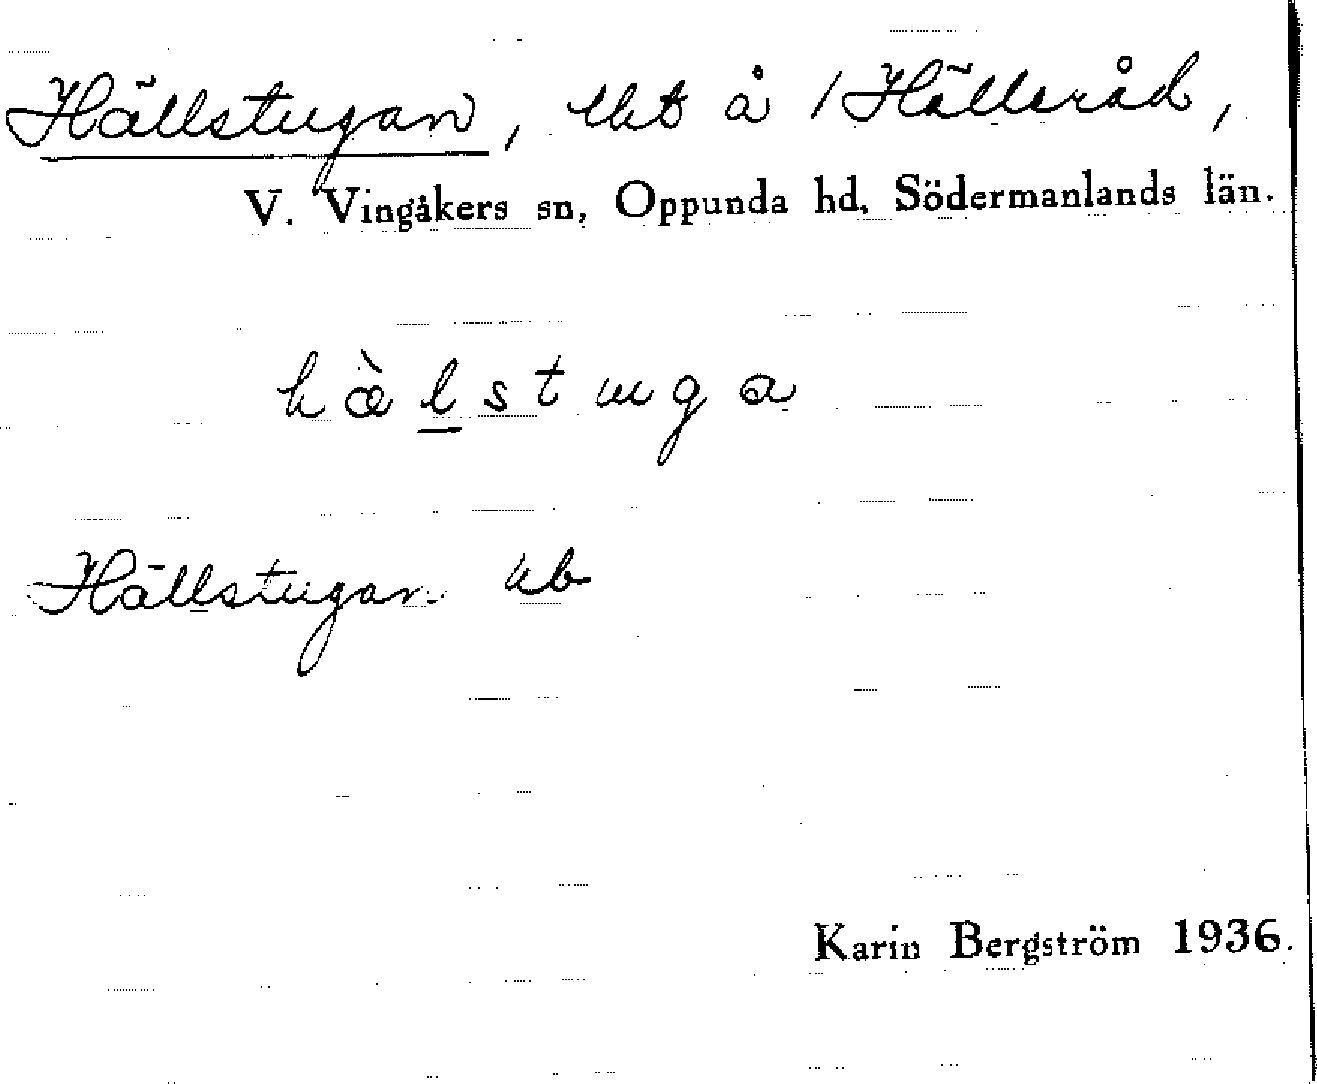 Hällstugan, tht å / Hällsråd,
V. Vingåkers sn, Oppunda hd, Södermanlands län.
hæ̀lstuga
Hällstugan ub
Karin Bergström 1936.